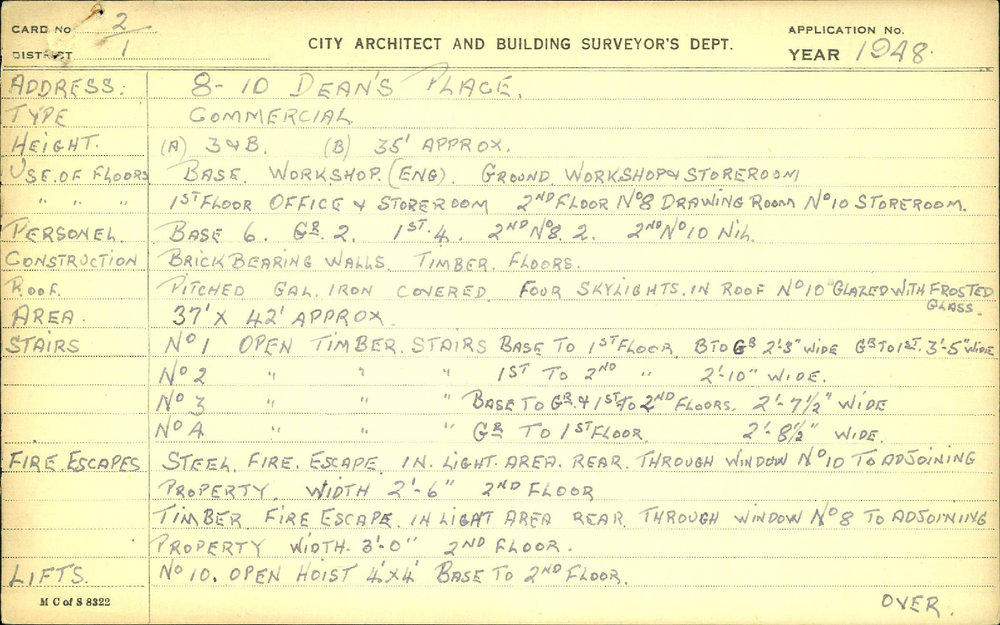 CARD No 2
DISTRICT 1
CITY ARCHITECT AND BUILDING SURVEYOR'S DEPT.
APPLICATION No.
YEAR 1948.
ADDRESS: 8-10 DEAN'S PLACE.
TYPE COMMERCIAL
HEIGHT. (A) 3&B. (B) 35' APPROX.
USE.OF FLOORS BASE. WORKSHOP. (ENG). GROUND WORKSHOP & STOREROOM
" " " 1ST FLOOR OFFICE & STOREROOM 2ND FLOOR No8 DRAWING ROOM No10 STOREROOM.
PERSONEL. BASE 6. GR. 2. 1ST. 4. 2ND No8. 2. 2ND No10 NIL.
CONSTRUCTION BRICK BEARING WALLS. TIMBER. FLOORS.
ROOF. PITCHED GAL. IRON COVERED. FOUR SKYLIGHTS. IN ROOF No10 "GLAZED WITH FROSTED
GLASS.
AREA. 37' X 42' APPROX.
STAIRS No 1 OPEN TIMBER. STAIRS BASE TO 1ST FLOOR. B TO GR 2'-3" WIDE GR TO 1ST. 3'-5" WIDE
No 2 " " " 1ST TO 2ND " 2'-10" WIDE.
No 3 " " " BASE TO GR. & 1ST TO 2ND FLOORS. 2'-7½" WIDE
No 4 " " " GR TO 1ST FLOOR. 2'-8½" WIDE.
FIRE ESCAPES STEEL. FIRE. ESCAPE. IN. LIGHT. AREA. REAR. THROUGH WINDOW No10 TO ADJOINING
PROPERTY. WIDTH 2'-6" 2ND FLOOR
TIMBER FIRE ESCAPE. IN LIGHT AREA REAR. THROUGH WINDOW No 8 TO ADJOINING
PROPERTY WIDTH. 3'-0" 2ND FLOOR.
LIFTS. No 10. OPEN HOIST 4'X4' BASE TO 2ND FLOOR.
M C of S 8322
OVER.